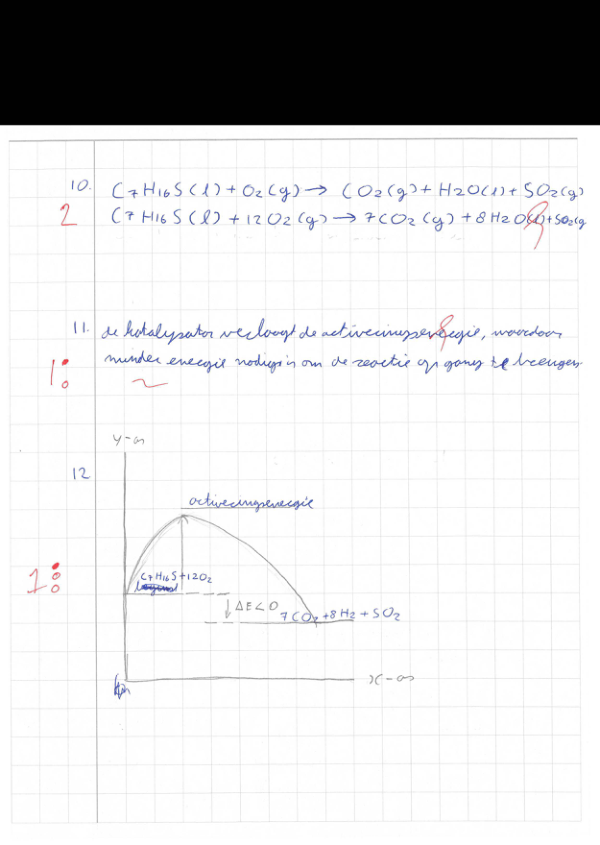 10. C7H16S(l) + O2(g) → CO2(g) + H2O(l) + SO2(g)
2 C7H16S(l) + 12O2(g) → 7CO2(g) + 8H2O(l) + SO2(g
11. de katalysator verlaagt de activeringsenergie, waardoor
1 minder energie nodig is om de reactie op gang te brengen.
y-as
12
activeringsenergie
C7H16S+12O2
1
ΔE<0
7CO2 + 8H2 + SO2
x-as